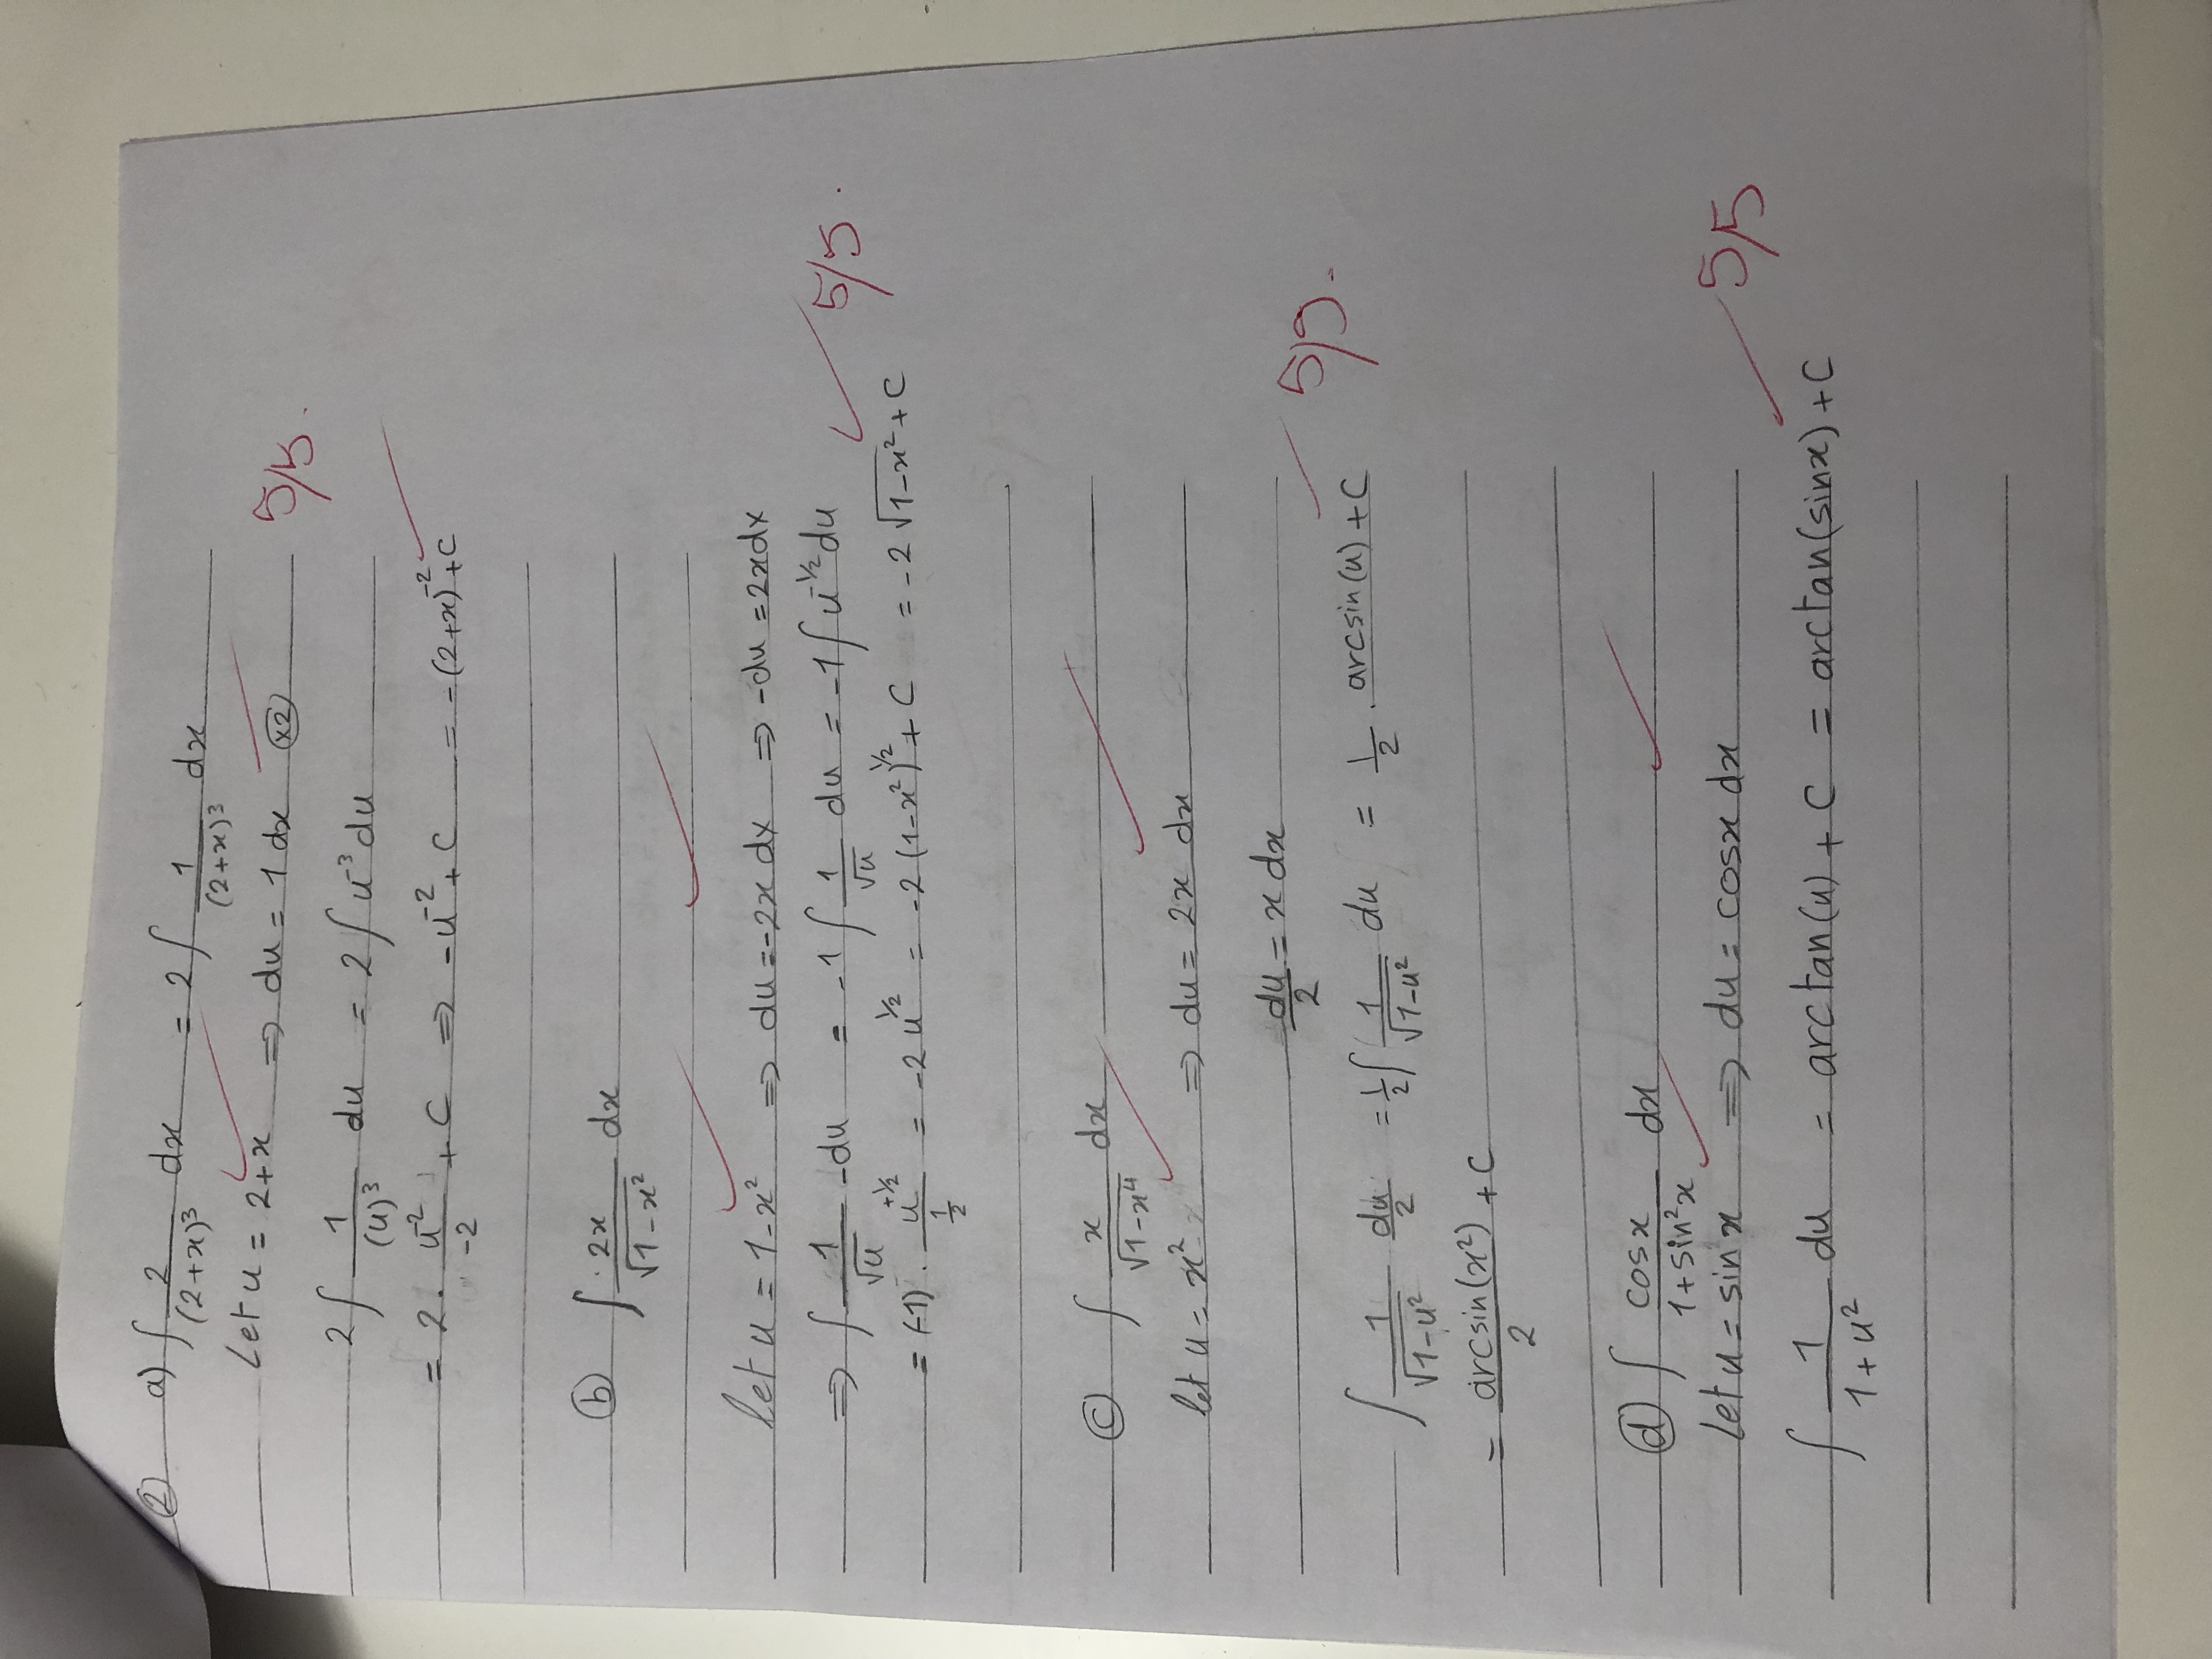 ② a) ∫ 2/(2+x)³ dx = 2 ∫ 1/(2+x)³ dx
Let u = 2+x ⇒ du = 1 dx (x2) 5/5.
2 ∫ 1/(u)³ du = 2 ∫ u⁻³ du
= 2 . u⁻²/-2 + C ⇒ -u⁻² + C = -(2+x)⁻² + C
ⓑ ∫ 2x/√(1-x²) dx
let u = 1-x² ⇒ du = -2x dx ⇒ -du = 2xdx
⇒ ∫ 1/√u -du = -1 ∫ 1/√u du = -1 ∫ u^(-1/2) du 5/5.
= (-1) . u^(+1/2)/(1/2) = -2 u^(1/2) = -2 (1-x²)^(1/2) + C = -2 √(1-x²) + C
ⓒ ∫ x/√(1-x⁴) dx
let u = x² ⇒ du = 2x dx
du/2 = x dx
∫ 1/√(1-u²) du/2 = 1/2 ∫ 1/√(1-u²) du = 1/2 . arcsin(u) + C 5/5.
= arcsin(x²)/2 + C
ⓓ ∫ cosx/(1+sin²x) dx
Let u = sin x ⇒ du = cosx dx 5/5
∫ 1/(1+u²) du = arctan(u) + C = arctan(sinx) + C